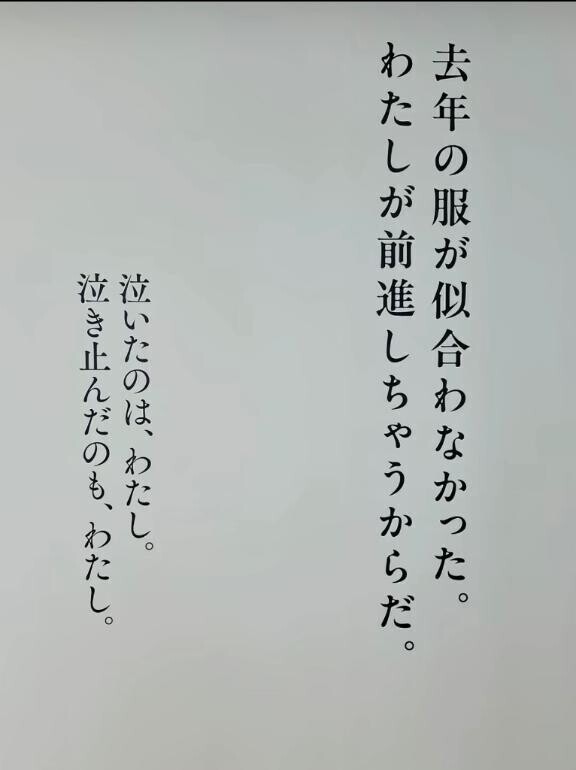 去年の服が似合わなかった。
わたしが前進しちゃうからだ。
泣いたのは、わたし。
泣き止んだのも、わたし。